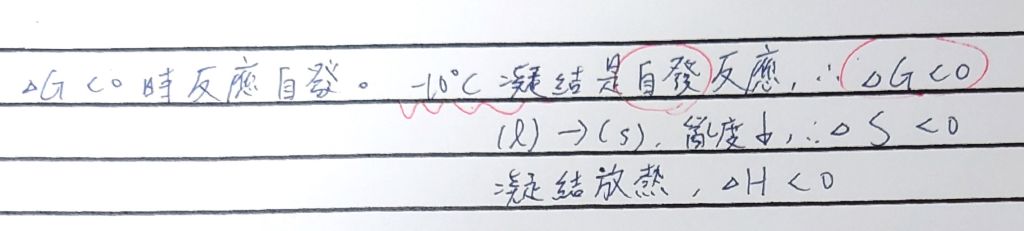 △G<0時反應自發。 -10°C 凝結是自發反應,∴△G<0
(l)→(s),亂度↓,∴△S<0
凝結放熱,△H<0